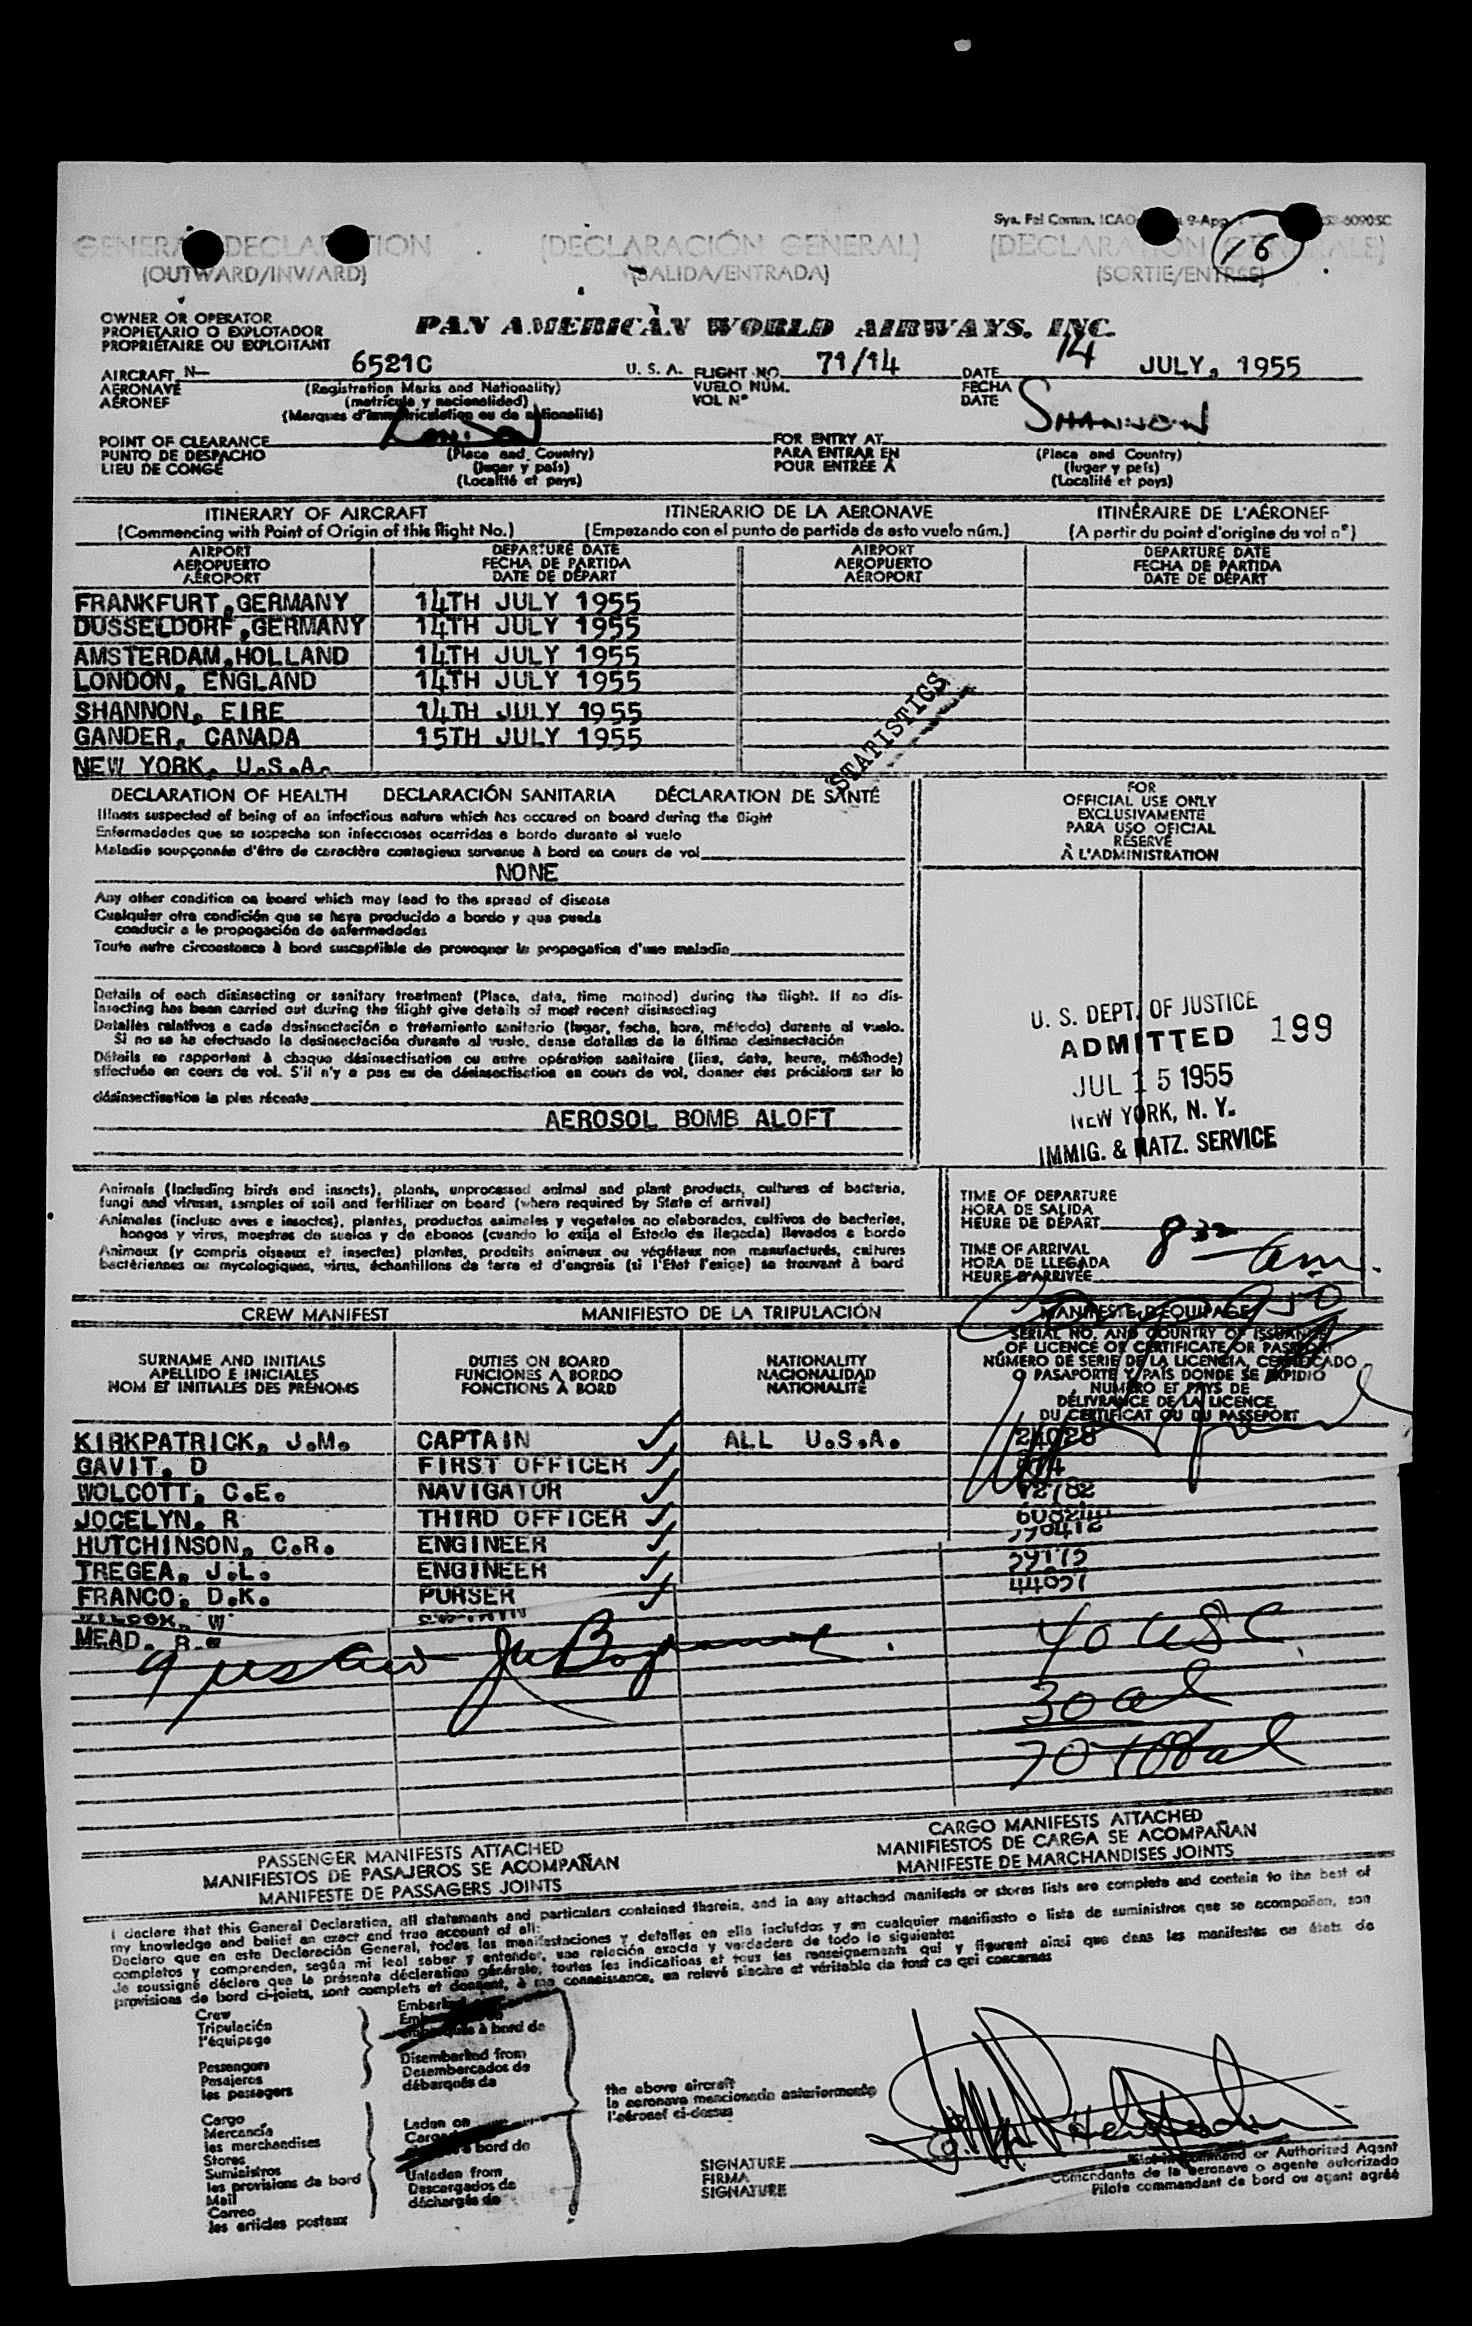 Sys. Fel Comm. ICAO 9-App.
16
GENERAL DECLARATION (DECLARACIÓN GENERAL) (DECLARATION GENERALE)
(OUTWARD/INWARD) (SALIDA/ENTRADA) (SORTIE/ENTREE)
OWNER OR OPERATOR
PROPIETARIO O EXPLOTADOR
PROPRIÉTAIRE OU EXPLOITANT
PAN AMERICAN WORLD AIRWAYS. INC.
AIRCRAFT N— 6521C U. S. A. FLIGHT NO. 71/14 DATE 14 JULY, 1955
AERONAVE (Registration Marks and Nationality) VUELO NÚM. FECHA
AÉRONEF (matrícula y nacionalidad) VOL N° DATE
(Marques d'immatriculation ou de nationalité)
POINT OF CLEARANCE London FOR ENTRY AT SHANNON
PUNTO DE DESPACHO (Place and Country) PARA ENTRAR EN (Place and Country)
LIEU DE CONGÉ (lugar y país) POUR ENTRÉE A (lugar y país)
(Localité et pays) (Localité et pays)
ITINERARY OF AIRCRAFT ITINERARIO DE LA AERONAVE ITINÉRAIRE DE L'AÉRONEF
(Commencing with Point of Origin of this flight No.) (Empezando con el punto de partida de esto vuelo núm.) (A partir du point d'origine du vol n°)
AIRPORT DEPARTURE DATE AIRPORT DEPARTURE DATE
AEROPUERTO FECHA DE PARTIDA AEROPUERTO FECHA DE PARTIDA
AÉROPORT DATE DE DÉPART AÉROPORT DATE DE DÉPART
FRANKFURT,GERMANY 14TH JULY 1955
DUSSELDORF,GERMANY 14TH JULY 1955
AMSTERDAM,HOLLAND 14TH JULY 1955
LONDON, ENGLAND 14TH JULY 1955
SHANNON, EIRE 14TH JULY 1955
GANDER, CANADA 15TH JULY 1955
NEW YORK, U.S.A.
STATISTICS
DECLARATION OF HEALTH DECLARACIÓN SANITARIA DÉCLARATION DE SANTÉ
Illness suspected of being of an infectious nature which has occured on board during the flight
Enfermedades que se sospecha son infecciosas ocurridas a bordo durante el vuelo
Maladie soupçonnée d'être de caractère contagieux survenue à bord en cours de vol
NONE
Any other condition on board which may lead to the spread of disease
Cualquier otra condición que se haya producido a bordo y que pueda
conducir a la propagación de enfermedades
Toute autre circonstance à bord susceptible de provoquer la propagation d'une maladie
Details of each disinsecting or sanitary treatment (Place, date, time method) during the flight. If no dis-
insecting has been carried out during the flight give details of most recent disinsecting
Detalles relativos a cada desinsectación o tratamiento sanitario (lugar, fecha, hora, método) durante el vuelo.
Si no se ha efectuado la desinsectación durante el vuelo, dense detalles de la última desinsectación
Détails se rapportant à chaque désinsectisation ou autre opération sanitaire (lieu, date, heure, méthode)
effectuée en cours de vol. S'il n'y a pas eu de désinsectisation en cours de vol, donner des précisions sur la
désinsectisation la plus récente
AEROSOL BOMB ALOFT
FOR
OFFICIAL USE ONLY
EXCLUSIVAMENTE
PARA USO OFICIAL
RÉSERVÉ
À L'ADMINISTRATION
U. S. DEPT. OF JUSTICE
ADMITTED 199
JUL 15 1955
NEW YORK, N. Y.
IMMIG. & NATZ. SERVICE
Animals (Including birds and insects), plants, unprocessed animal and plant products, cultures of bacteria,
fungi and viruses, samples of soil and fertilizer on board (where required by State of arrival)
Animales (incluso aves e insectos), plantas, productos animales y vegetales no elaborados, cultivos de bacterias,
hongos y virus, muestras de suelos y de abonos (cuando lo exija el Estado de llegada) llevados a bordo
Animaux (y compris oiseaux et insectes) plantes, produits animaux ou végétaux non manufacturés, cultures
bactériennes ou mycologiques, virus, échantillons de terre et d'engrais (si l'Etat l'exige) se trouvant à bord
TIME OF DEPARTURE
HORA DE SALIDA
HEURE DE DÉPART
TIME OF ARRIVAL 8 30 am.
HORA DE LLEGADA
HEURE D'ARRIVÉE
CREW MANIFEST MANIFIESTO DE LA TRIPULACIÓN MANIFESTE D'EQUIPAGE
SURNAME AND INITIALS DUTIES ON BOARD NATIONALITY SERIAL NO. AND COUNTRY OF ISSUANCE
APELLIDO E INICIALES FUNCIONES A BORDO NACIONALIDAD OF LICENCE OR CERTIFICATE OR PASSPORT
NOM ET INITIALES DES PRÉNOMS FONCTIONS À BORD NATIONALITÉ NÚMERO DE SERIE DE LA LICENCIA, CERTIFICADO
O PASAPORTE Y PAÍS DONDE SE EXPIDIÓ
NUMÉRO ET PAYS DE
DÉLIVRANCE DE LA LICENCE,
DU CERTIFICAT OU DU PASSEPORT
KIRKPATRICK, J.M. CAPTAIN ✓ ALL U.S.A. 24028
GAVIT, D FIRST OFFICER ✓
WOLCOTT, C.E. NAVIGATOR ✓ 12782
JOCELYN, R THIRD OFFICER ✓
HUTCHINSON, C.R. ENGINEER ✓
TREGEA, J.L. ENGINEER ✓
FRANCO, D.K. PURSER ✓ 44057
WILCOX, W
MEAD,
9
40 USC
30 al
70 total
PASSENGER MANIFESTS ATTACHED CARGO MANIFESTS ATTACHED
MANIFIESTOS DE PASAJEROS SE ACOMPAÑAN MANIFIESTOS DE CARGA SE ACOMPAÑAN
MANIFESTE DE PASSAGERS JOINTS MANIFESTE DE MARCHANDISES JOINTS
I declare that this General Declaration, all statements and particulars contained therein, and in any attached manifests or stores lists are complete and contain to the best of
my knowledge and belief an exact and true account of all:
Declaro que en esta Declaración General, todas las manifestaciones y detalles en ella incluídos y en cualquier manifiesto o lista de suministros que se acompañan, son
completos y comprenden, según mi leal saber y entender, una relación exacta y verdadera de todo lo siguiente:
Je soussigné déclare que la présente déclaration générale, toutes les indications et tous les renseignements qui y figurent ainsi que dans les manifestes on états de
provisions de bord ci-joints, sont complets et donnent, à ma connaissance, un relevé sincère et véritable de tout ce qui concernes
Crew
Tripulación
l'équipage
Passengers
Pasajeros
les passagers
Cargo
Mercancía
les marchandises
Stores
Suministros
les provisions de bord
Mail
Correo
les articles postaux
à bord de
Disembarked from
Desembarcados de
débarqués de
Laden on
bord de
Unladen from
Descargados de
déchargés de
the above aircraft
la aeronave mencionada anteriormente
l'aéronef ci-dessus
SIGNATURE
FIRMA
SIGNATURE
Pilot in command or Authorized Agent
Comandante de la aeronave o agente autorizado
Pilote commandant de bord ou agent agréé